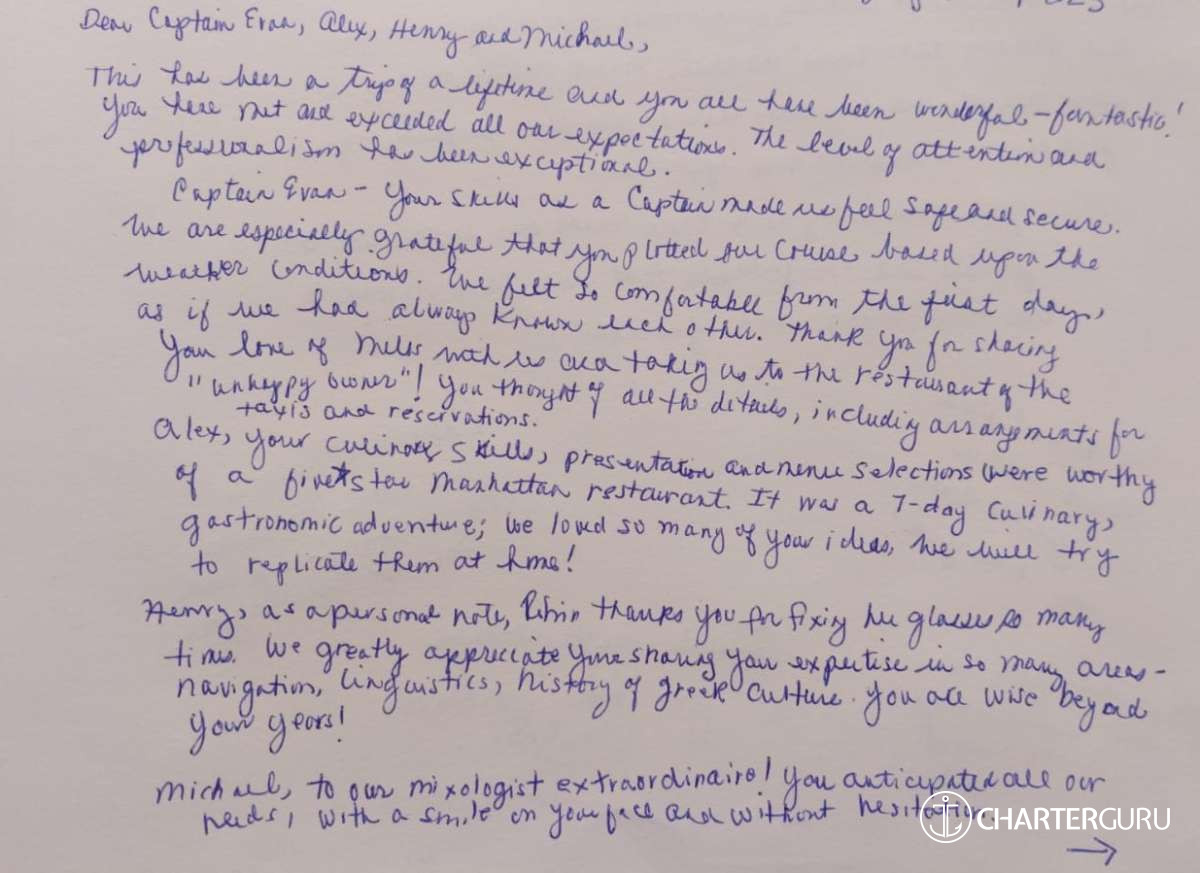 2023
Dear Captain Evan, Alex, Henry and Michael,
This has been a trip of a lifetime and you all have been wonderful - fantastic!
You have met and exceeded all our expectations. The level of attention and
professionalism has been exceptional.
Captain Evan - Your skills as a Captain made us feel safe and secure.
We are especially grateful that you plotted our course based upon the
weather conditions. We felt so comfortable from the first day,
as if we had always known each other. Thank you for sharing
your love of Milos with us and taking us to the restaurant of the
"unhappy owner"! You thought of all the details, including arrangements for
taxis and reservations.
Alex, your culinary skills, presentation and menu selections were worthy
of a five star Manhattan restaurant. It was a 7-day culinary,
gastronomic adventure; we loved so many of your ideas, we will try
to replicate them at home!
Henry, as a personal note, thanks you for fixing her glasses so many
times. We greatly appreciate your sharing your expertise in so many areas -
navigation, linguistics, history of greek culture. You are wise beyond
your years!
Michael, to our mixologist extraordinaire! You anticipated all our
needs, with a smile on your face and without hesitation.
→
CHARTERGURU